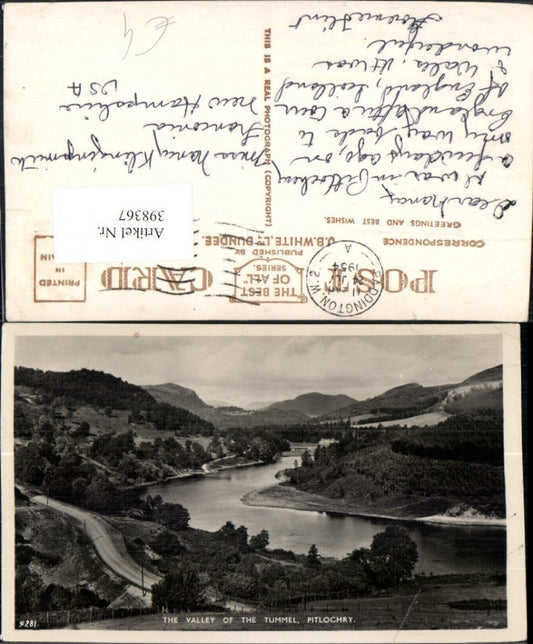 POST CARD
THE BEST
OF ALL
SERIES.
PUBLISHED BY
J.B. WHITE, LTD DUNDEE.
PRINTED
IN
CORRESPONDENCE
GREETINGS AND BEST WISHES.
THIS IS A REAL PHOTOGRAPH (COPYRIGHT)
PADDINGTON.W.2.
1954
A
Artikel Nr.
398367
Dear Nancy,
I was in Pitlochry
a few days ago, on
my way back to
England after a tour
of England, Scotland
& Wales. It was
wonderful.
Florence Flint
Miss Nancy Klingensmith
New Hampshire
USA
€4
9281.
THE VALLEY OF THE TUMMEL, PITLOCHRY.